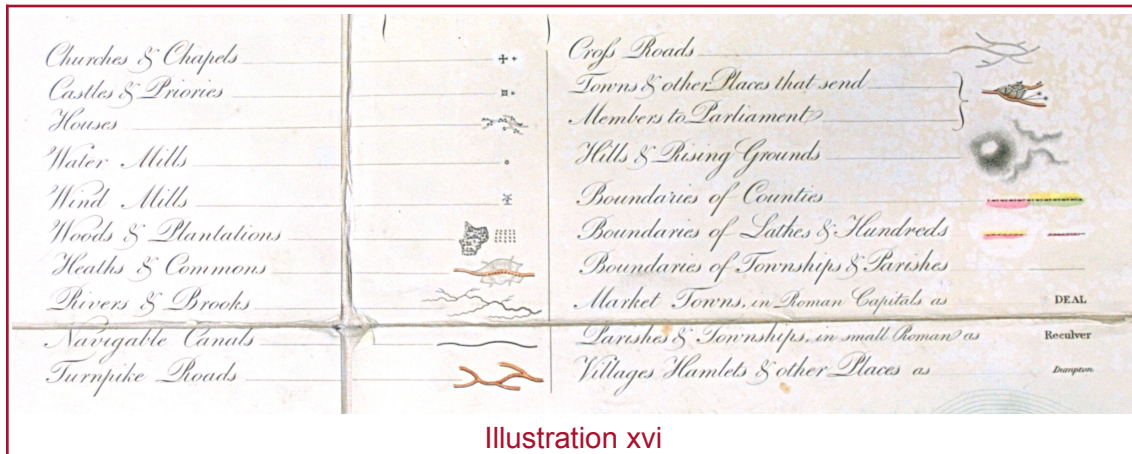 Churches & Chapels
Castles & Priories
Houses
Water Mills
Wind Mills
Woods & Plantations
Heaths & Commons
Rivers & Brooks
Navigable Canals
Turnpike Roads
Croſs Roads
Towns & other Places that send
Members to Parliament
Hills & Rising Grounds
Boundaries of Counties
Boundaries of Lathes & Hundreds
Boundaries of Townships & Parishes
Market Towns, in Roman Capitals as DEAL
Parishes & Townships, in small Roman as Reculver
Villages Hamlets & other Places as
Illustration xvi